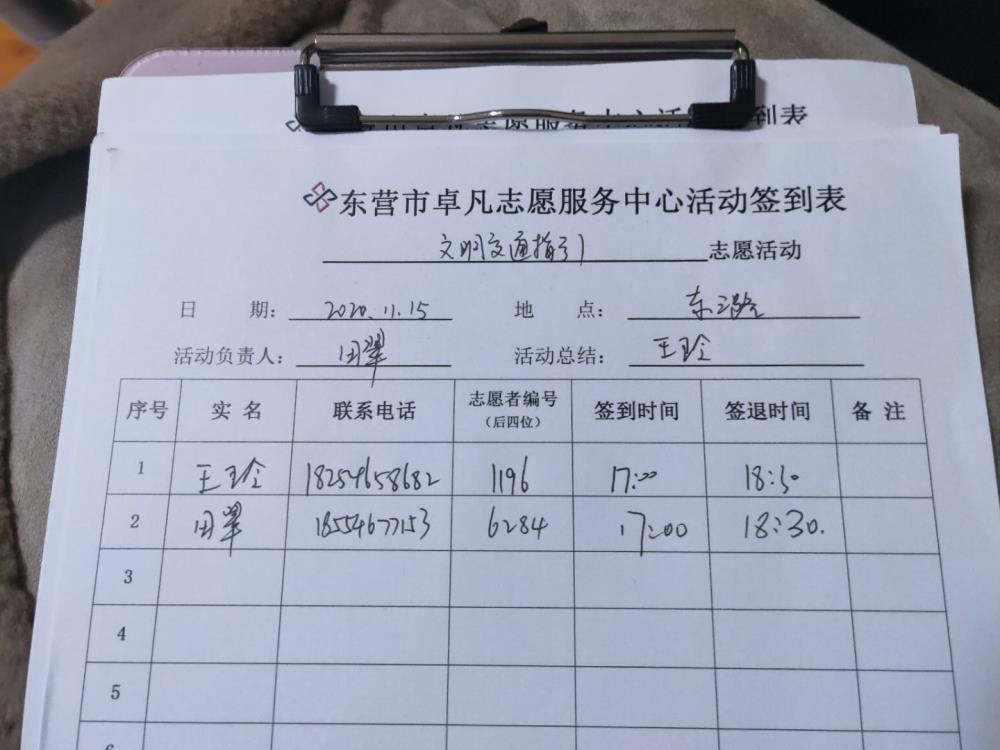 东营市卓凡志愿服务中心活动签到表
文明交通指引 志愿活动
日 期： 2020.11.15 地 点： 东三路
活动负责人： 田翠 活动总结： 王玲
序号 实 名 联系电话 志愿者编号（后四位） 签到时间 签退时间 备 注
1 王玲 18254658682 1196 17:00 18:30
2 田翠 18554677153 6284 17:00 18:30.
3
4
5